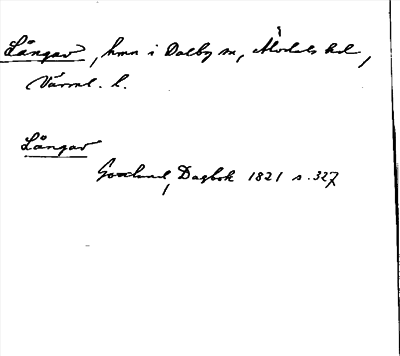 Långav, hmn i Dalby sn, Älvdals hd,
Värml. l.
Långav
Gosselund, Dagbok 1821 s. 327